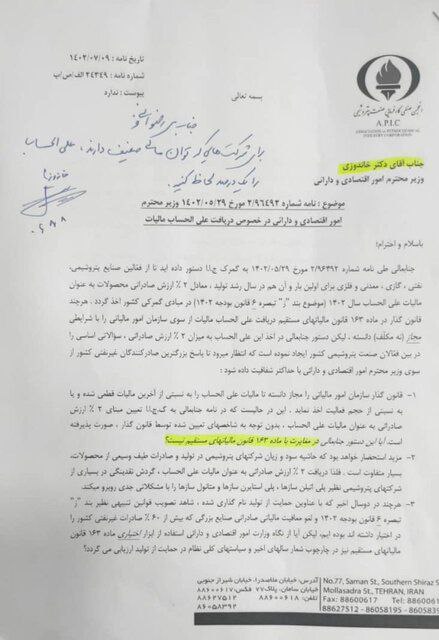 انجمن صنفی کارفرمایی صنعت پتروشیمی
A.P.I.C
ASSOCIATION OF PETROCHEMICAL
INDUSTRY CORPORATION
تاریخ نامه : ۱۴۰۲/۰۷/۰۹
شماره نامه : ۲۴۳۴۹/الف/ص/پ
پیوست : ندارد
بسمه تعالی
جناب
برای شرکت‌هایی که توان مالی ضعیف دارند، علی الحساب
را یک درصد لحاظ کنید.
جناب آقای دکتر خاندوزی
وزیر محترم امور اقتصادی و دارائی
موضوع : نامه شماره ۲/۹۶۴۹۲ مورخ ۱۴۰۲/۰۵/۲۹ وزیر محترم
امور اقتصادی و دارائی در خصوص دریافت علی الحساب مالیات
باسلام و احترام؛
جنابعالی طی نامه شماره ۲/۹۶۴۹۲ مورخ ۱۴۰۲/۰۵/۲۹ به گمرک ج.ا.ا دستور داده اید تا از فعالین صنایع پتروشیمی،
نفتی ، گازی ، معدنی و فلزی برای اولین بار و آن هم در سال رشد تولید ، معادل ۲ % ارزش صادراتی محصولات به عنوان
علی الحساب مالیات سال ۱۴۰۲ (موضوع بند "ز" تبصره ۶ قانون بودجه ۱۴۰۲) در مبادی گمرکی کشور اخذ گردد . هرچند
قانون گذار در ماده ۱۶۳ قانون مالیاتهای مستقیم دریافت علی الحساب مالیات از سوی سازمان امور مالیاتی را با شرایطی
مجاز (نه مکلف) دانسته ، لیکن دستور جنابعالی در اخذ این علی الحساب به میزان ۲ % ارزش صادراتی ، سؤالاتی اساسی را
در بین فعالان صنعت پتروشیمی کشور ایجاد نموده است که انتظار میرود تا پاسخ بزرگترین صادرکنندگان غیرنفتی کشور از
سوی وزیر محترم امور اقتصادی و دارائی با حداکثر شفافیت داده شود :
۱- قانون گذار سازمان امور مالیاتی را مجاز دانسته تا مالیات علی الحساب را به نسبتی از آخرین مالیات قطعی شده و یا
به نسبتی از حجم فعالیت اخذ نماید . این در حالیست که در نامه جنابعالی به گ.ج.ا.ا تعیین مبنای ۲ % ارزش
صادراتی به عنوان مالیات علی الحساب ، بدون توجه به شاخصهای تعیین شده توسط قانون گذار ، صورت پذیرفته
است. آیا این دستور جنابعالی در مغایرت با ماده ۱۶۳ قانون مالیاتهای مستقیم نیست؟
۲- مزید استحضار خواهد بود که حاشیه سود و زیان شرکتهای پتروشیمی در تولید و صادرات طیف وسیعی از محصولات،
بسیار متفاوت است . فلذا دریافت ۲ % ارزش صادراتی به عنوان مالیات علی الحساب ، گردش نقدینگی در بسیاری از
شرکتهای پتروشیمی نظیر پلی اتیلن سازها ، پلی استایرن سازها و متانول سازها را با مشکلاتی جدی روبرو میکند.
۳- هرچند در دوسال اخیر که با عناوین حمایت از تولید نام گذاری شده ، شاهد تصویب قوانین تنبیهی نظیر بند "ز"
تبصره ۶ قانون بودجه ۱۴۰۲ و لغو معافیت مالیاتی صادراتی صنایع بزرگی که بیش از ۶۰ % صادرات غیرنفتی کشور را
در اختیار داشته اند بوده ایم، لیکن آیا از نگاه وزارت امور اقتصادی و دارائی استفاده از ابزار اختیاری ماده ۱۶۳ قانون
مالیاتهای مستقیم نیز در چارچوب شعار سالهای اخیر و سیاستهای کلی نظام در حمایت از تولید ارزیابی می گردد؟
آدرس: خیابان ملاصدرا، خیابان شیراز جنوبی
خیابان سامان، پلاک ۷۷
تلفن: ۸۸۶۰۰۶۱۸
فکس: ۸۸۶۰۰۶۱۷
۸۸۶۲۷۵۱۲
۸۶۰۵۸۳۹۲
No.77, Saman St., Southern Shiraz S
Mollasadra St., TEHRAN, IRAN
Fax: 88600617 Tel: 8860061
88627512 - 86058195 - 8605839